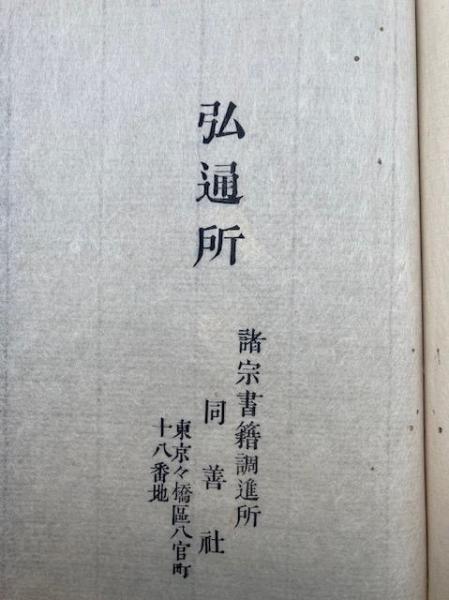 弘通所
諸宗書籍調進所
同善社
東京々橋區八官町
十八番地